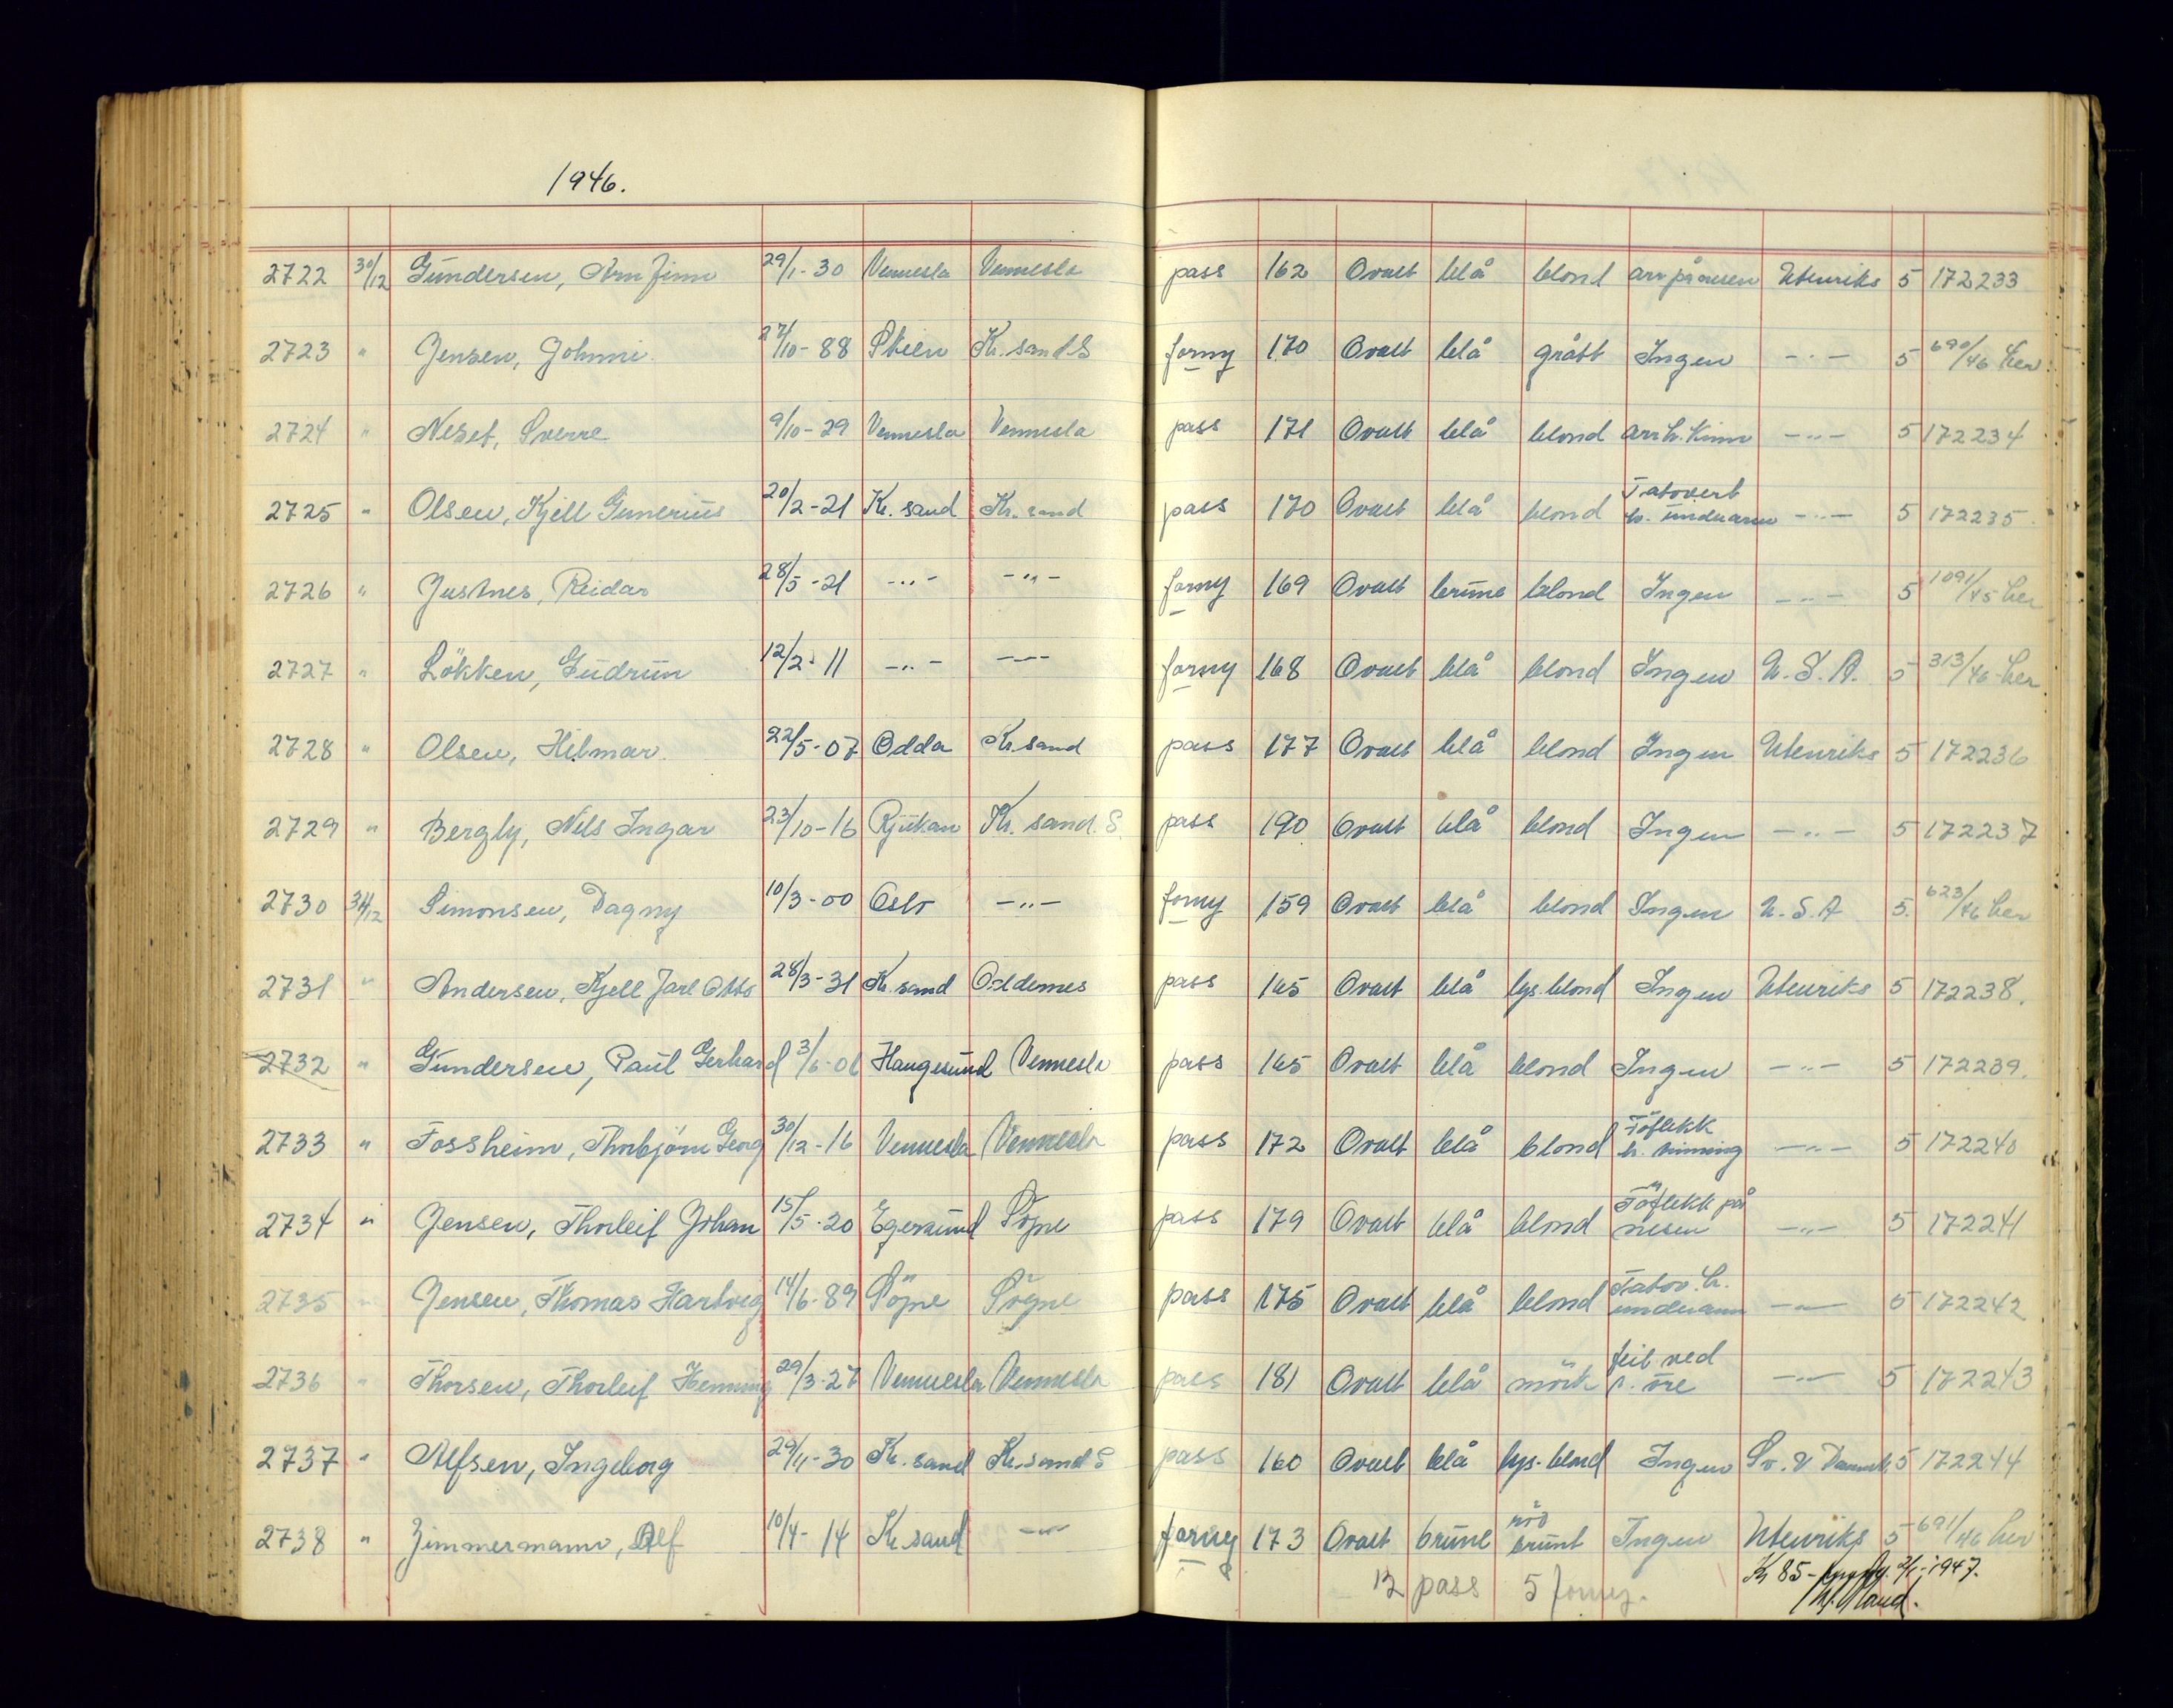 1946.
2722 30/12 Gundersen, Arn Finn 29/1-30 Vennesla Vennesla pass 162 Ovalt blå blond arr på nesen Utenriks 5 172233
2723 " Jensen, Johnni 27/10-88 Skien Kr.sand S forny 170 Ovalt blå grått Ingen -"- 5 690/46 her
2724 " Neset, Sverre 9/10-29 Vennesla Vennesla pass 171 Ovalt blå blond arr h. kinn -"- 5 172234
2725 " Olsen, Kjell Gunerius 20/2-21 Kr.sand Kr.sand pass 170 Ovalt blå blond Tatovert h. underarm -"- 5 172235
2726 " Justnes, Reidar 28/5-21 -"- -"- forny 169 Ovalt brune blond Ingen -"- 5 1091/45 her
2727 " Lökken, Gudrun 12/2-11 -"- -"- forny 168 Ovalt blå blond Ingen U.S.A. 5 313/46 her
2728 " Olsen, Hilmar 22/5-07 Odda Kr.sand pass 177 Ovalt blå blond Ingen Utenriks 5 172236
2729 " Bergly, Nils Ingar 23/10-16 Rjukan Kr.sand.S. pass 190 Ovalt blå blond Ingen -"- 5 172237
2730 31/12 Simonsen, Dagny 10/3-00 Oslo -"- forny 159 Ovalt blå blond Ingen U.S.A 5. 623/46 her
2731 " Andersen, Kjell Jarl Otto 28/3-31 Kr.sand Oddernes pass 165 Ovalt blå lys.blond Ingen Utenriks 5 172238.
2732 " Gundersen, Paul Gerhard 3/6-06 Haugesund Vennesla pass 165 Ovalt blå blond Ingen -"- 5 172239.
2733 " Fossheim, Thorbjörn Georg 30/12-16 Vennesla Vennesla pass 172 Ovalt blå blond Föflekk h. tinning -"- 5 172240
2734 " Jensen, Thorleif Johan 15/5-20 Egersund Sögne pass 179 Ovalt blå blond Föflekk på nesen -"- 5 172241
2735 " Jensen, Thomas Hartvig 14/6-89 Sögne Sögne pass 175 Ovalt blå blond Tatov. h. underarm -"- 5 172242
2736 " Thorsen, Thorleif Henning 29/3-27 Vennesla Vennesla pass 181 Ovalt blå mörk ved öre -"- 5 172243
2737 " Alfsen, Ingeborg 29/11-30 Kr.sand Kr.sand S pass 160 Ovalt blå lys-blond Ingen Sv. & Danmk. 5 172244
2738 " Zimmermann, Alf 10/4-14 Kr.sand -"- forny 173 Ovalt brune rød brunt Ingen Utenriks 5 691/46 her
12 pass 5 forny.
Kr 85- 2/1-1947.